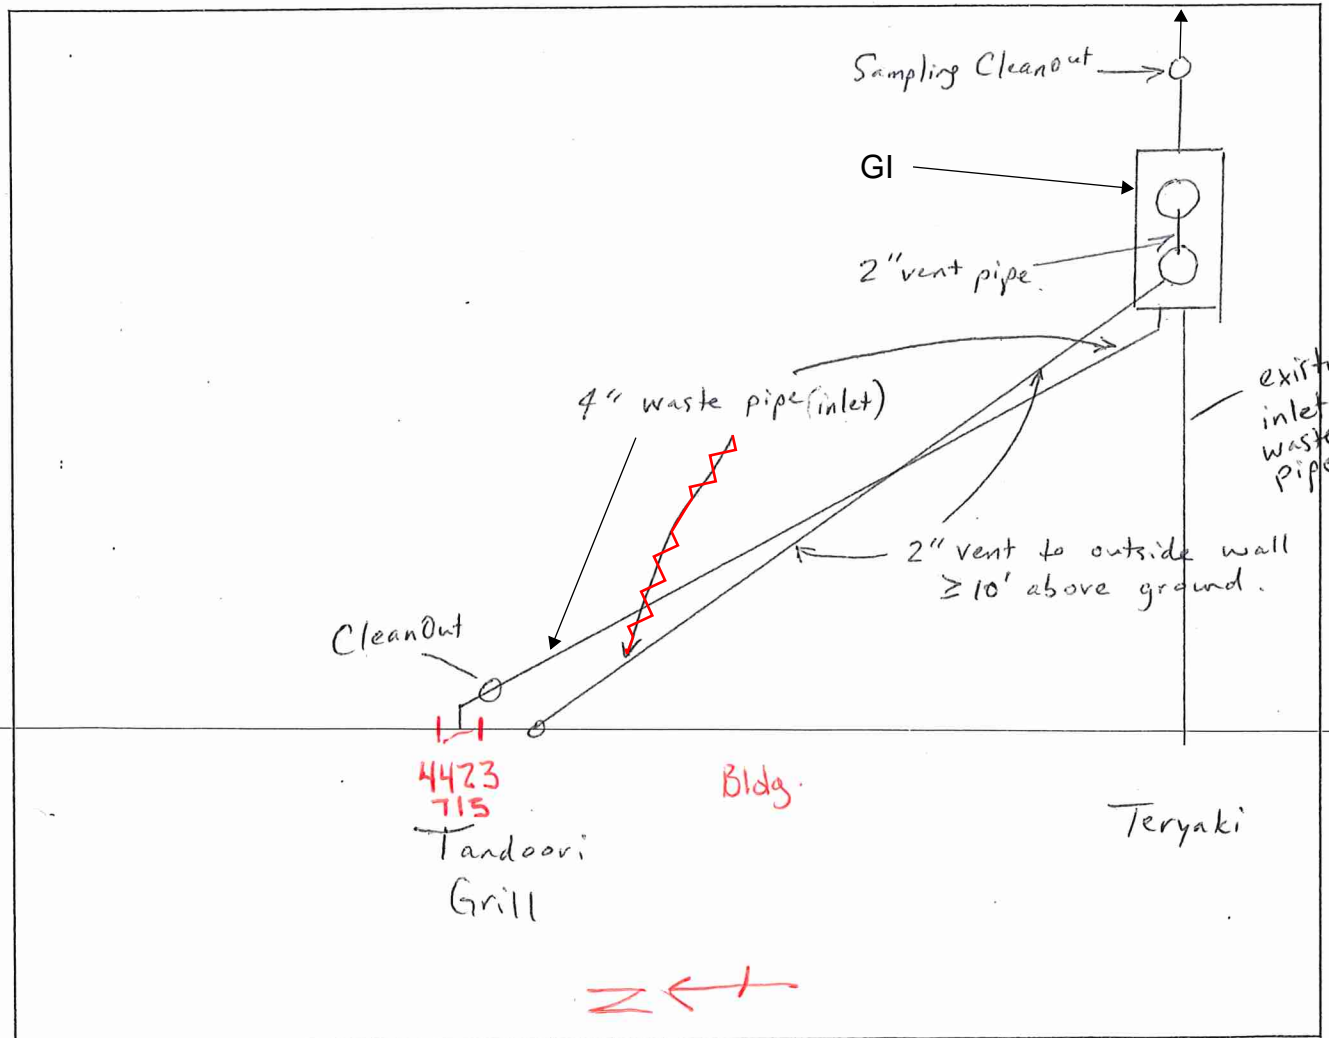 Sampling Cleanout
GI
2" vent pipe.
4" waste pipe (inlet)
inlet
2" vent to outside wall
≥ 10' above ground.
CleanOut
4423
715
Bldg.
Tandoori
Grill
Teryaki
N